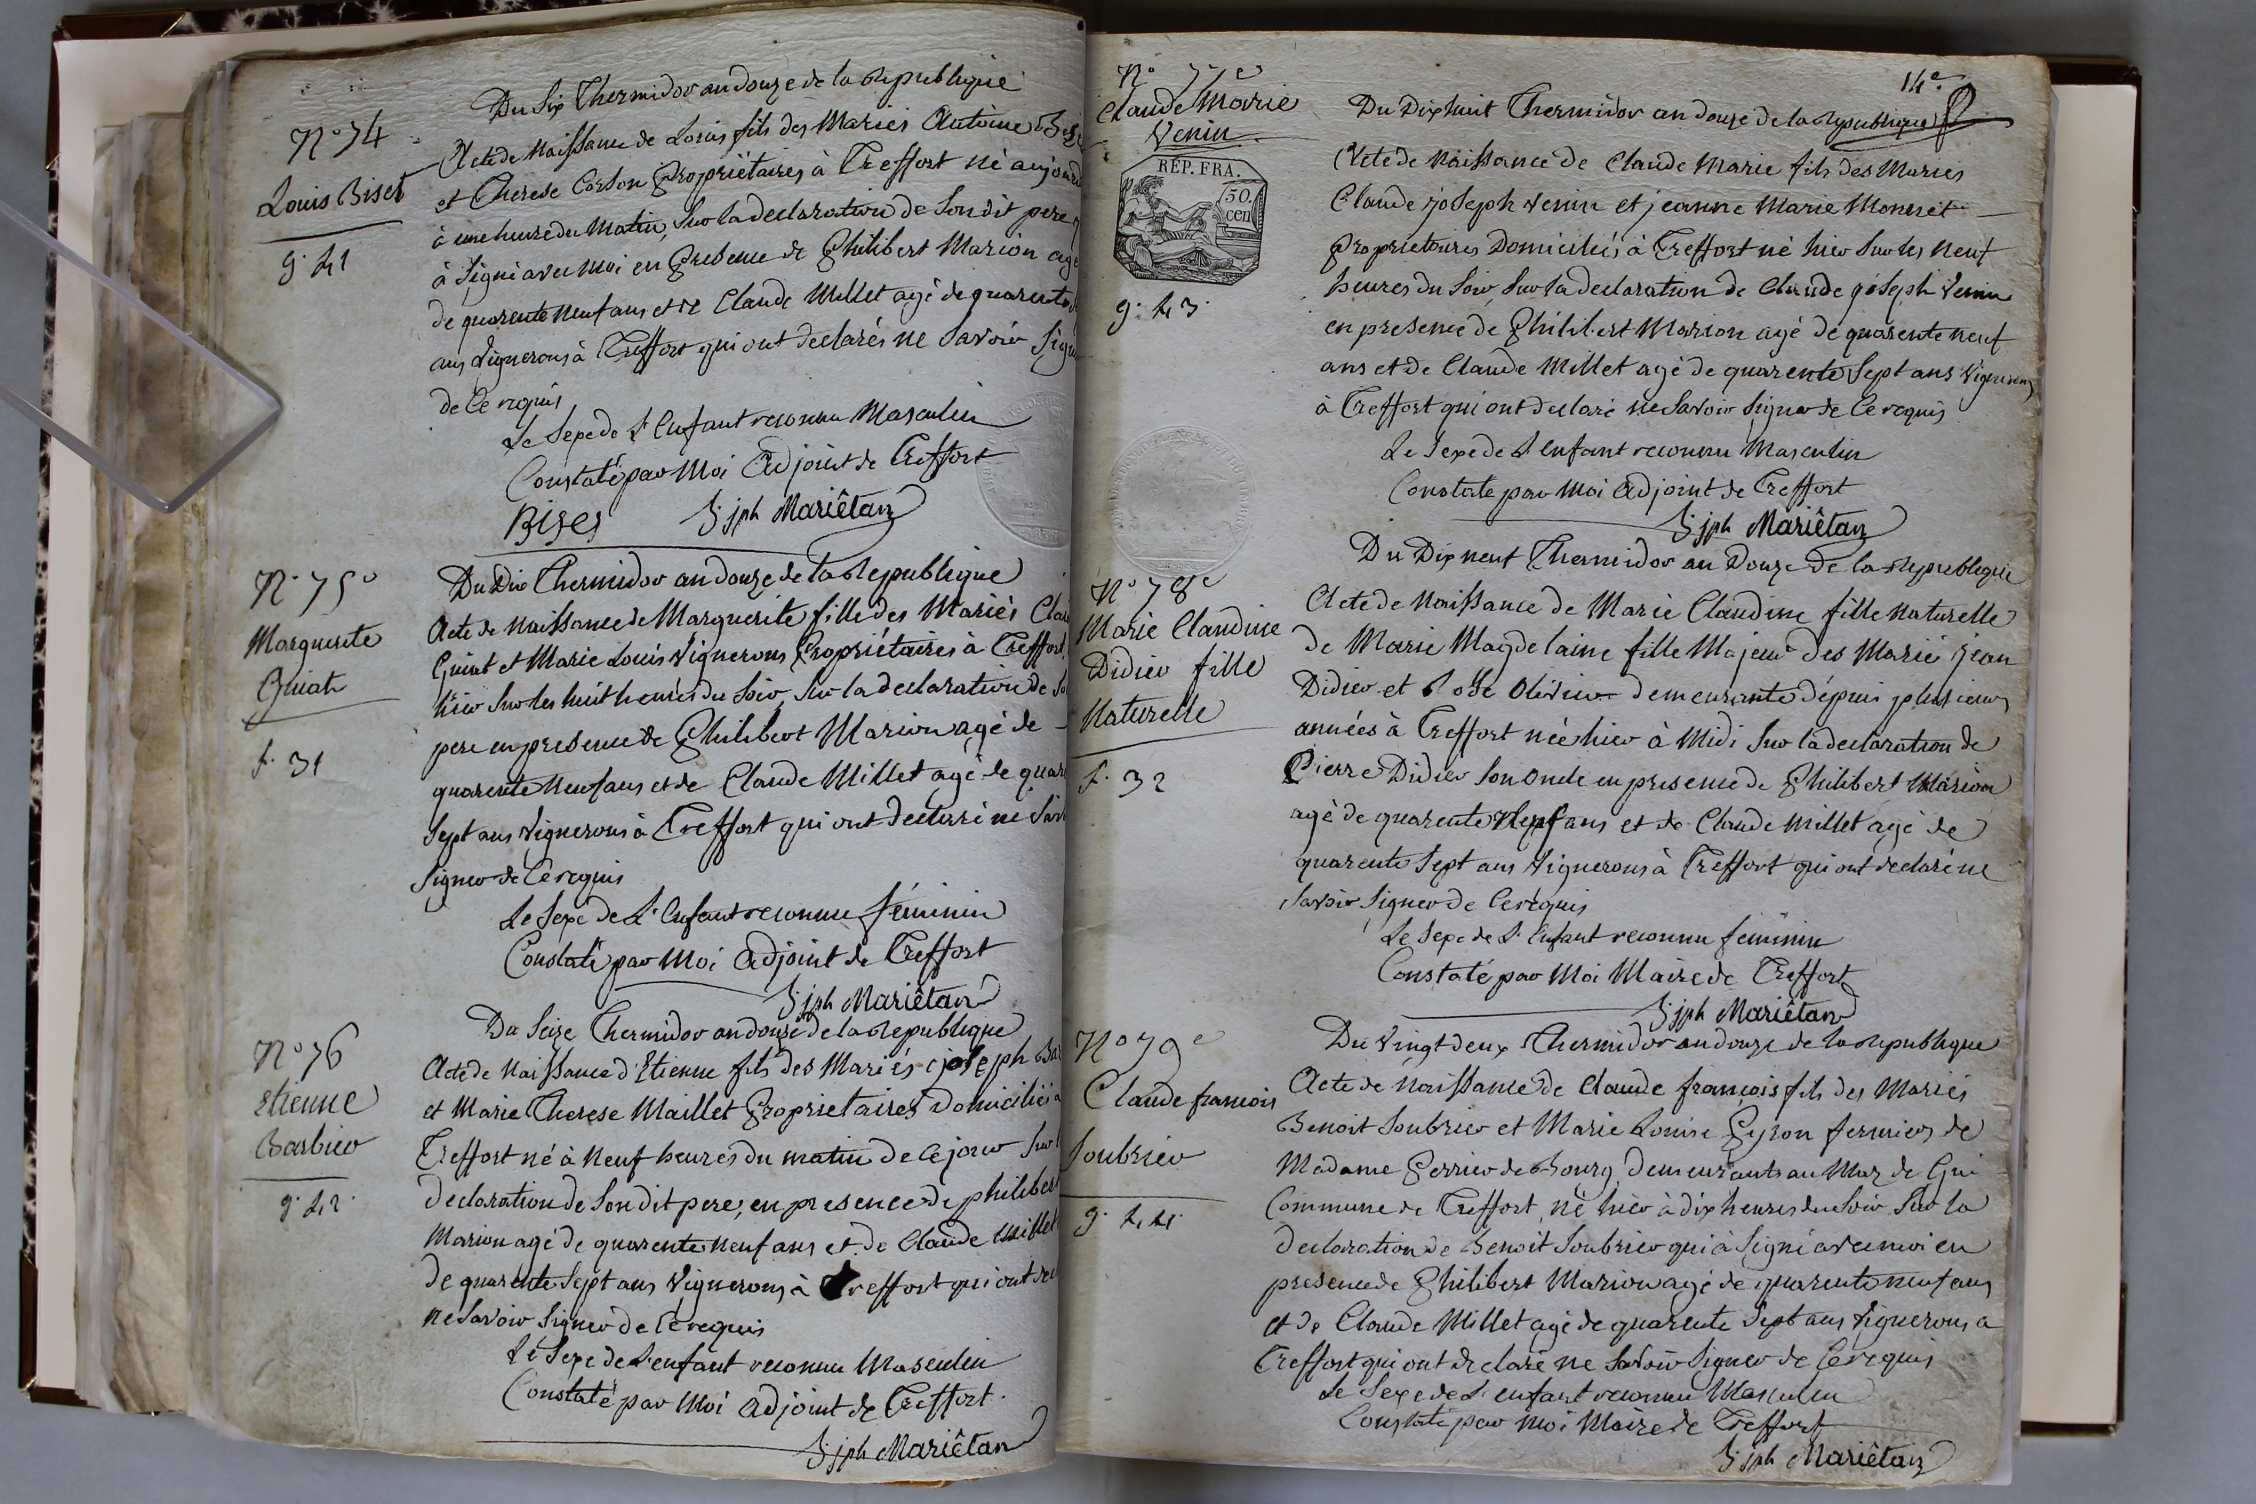 Du Six Thermidor an douze de la Republique
N° 74
Louis Biset
g. 41
Acte de Naissance de Louis fils des Mariés Antoine
et Therese Corson Propriétaires à Treffort né aujourd
à une heure du Matin, Sur la declaration de Son dit pere
à Signé avec moi en Presence de Philibert Marion agé
de quarente neuf ans et de Claude Millet agé de quarente
ans Vignerons à Treffort qui ont declarés ne Savoir Signer
de Ce requis
Le Sexe de L'Enfant reconnu Masculin
Constaté par Moi Adjoint de Treffort
Biset J. jph Mariêtan
N° 75°
Marguerite
Guiat
f. 31
Du Dix Thermidor an douze de la Republique
Acte de Naissance de Marguerite fille des Mariés
Guiat et Marie Louis Vignerons Propriétaires à Treffort
hier Sur les huit heures du Soir, Sur la declaration de
pere en presence de Philibert Marion agé de
quarente Neuf ans et de Claude Millet agé de
Sept ans Vignerons à Treffort qui ont declaré ne
Signer de Ce requis
Le Sexe de L'Enfant reconnu féminin
Constaté par Moi Adjoint de Treffort
J. jph Mariêtan
N° 76
Etienne
Barbier
g. 42.
Du Seize Thermidor an douze de la Republique
Acte de Naissance d'Etienne fils des Mariés joseph
et Marie Therese Maillet Proprietaires Domiciliés
Treffort né à Neuf heures du matin de Ce jour Sur
declaration de Son dit pere, en presence de philibert
Marion agé de quarente neuf ans et de Claude Millet
de quarente Sept ans Vignerons à Treffort qui ont
ne Savoir Signer de Ce requis
Le Sexe de L'enfant reconnu Masculin
Constaté par Moi Adjoint de Treffort.
J. jph Mariêtan
14e
N° 77e
Claude Marie
Venin
RÉP. FRA.
50.
cen
g. 43.
Du Dixhuit Thermidor an douze de la Republique
Acte de Naissance de Claude Marie fils des Mariés
Claude joseph Venin et jeanne Marie Monnet
Proprietaires Domiciliés à Treffort né hier Sur les Neuf
heures du Soir, Sur la declaration de Claude joseph Venin
en presence de Philibert Marion agé de quarente neuf
ans et de Claude Millet agé de quarente Sept ans Vignerons
à Treffort qui ont declaré ne Savoir Signer de Ce requis
Le Sexe de L'enfant reconnu Masculin
Constaté par Moi Adjoint de Treffort
J. jph Mariêtan
N° 78e
Marie Claudine
Didier fille
Naturelle
f. 32
Du Dix neuf Thermidor an Douze de la Republique
Acte de Naissance de Marie Claudine fille Naturelle
de Marie Magdelaine fille Majeure des Marié jean
Didier et Rose Olivier demeurante depuis plusieurs
années à Treffort née hier à Midi Sur la declaration de
Pierre Didier Son Oncle en presence de Philibert Marion
agé de quarente Neuf ans et de Claude Millet agé de
quarente Sept ans Vignerons à Treffort qui ont declaré ne
Savoir Signer de Ce requis
Le Sexe de L'Enfant reconnu féminin
Constaté par Moi Maire de Treffort
J. jph Mariêtan
N° 79e
Claude francois
Soubrier
g. 44.
Du Vingt deux Thermidor an douze de la Republique
Acte de Naissance de Claude françois fils des Mariés
Benoit Soubrier et Marie Louise Pyron fermiers de
Madame Perrier de Bourg demeurants au Maz de Gui
Commune de Treffort, né hier à dix heures du Soir Sur la
declaration de Benoit Soubrier qui à Signé avec moi en
presence de Philibert Marion agé de quarente neuf ans
et de Claude Millet agé de quarente Sept ans Vignerons a
Treffort qui ont declaré ne Savoir Signer de Ce requis
Le Sexe de L'enfant reconnu Masculin
Constaté par Moi Maire de Treffort
J. jph Mariêtan